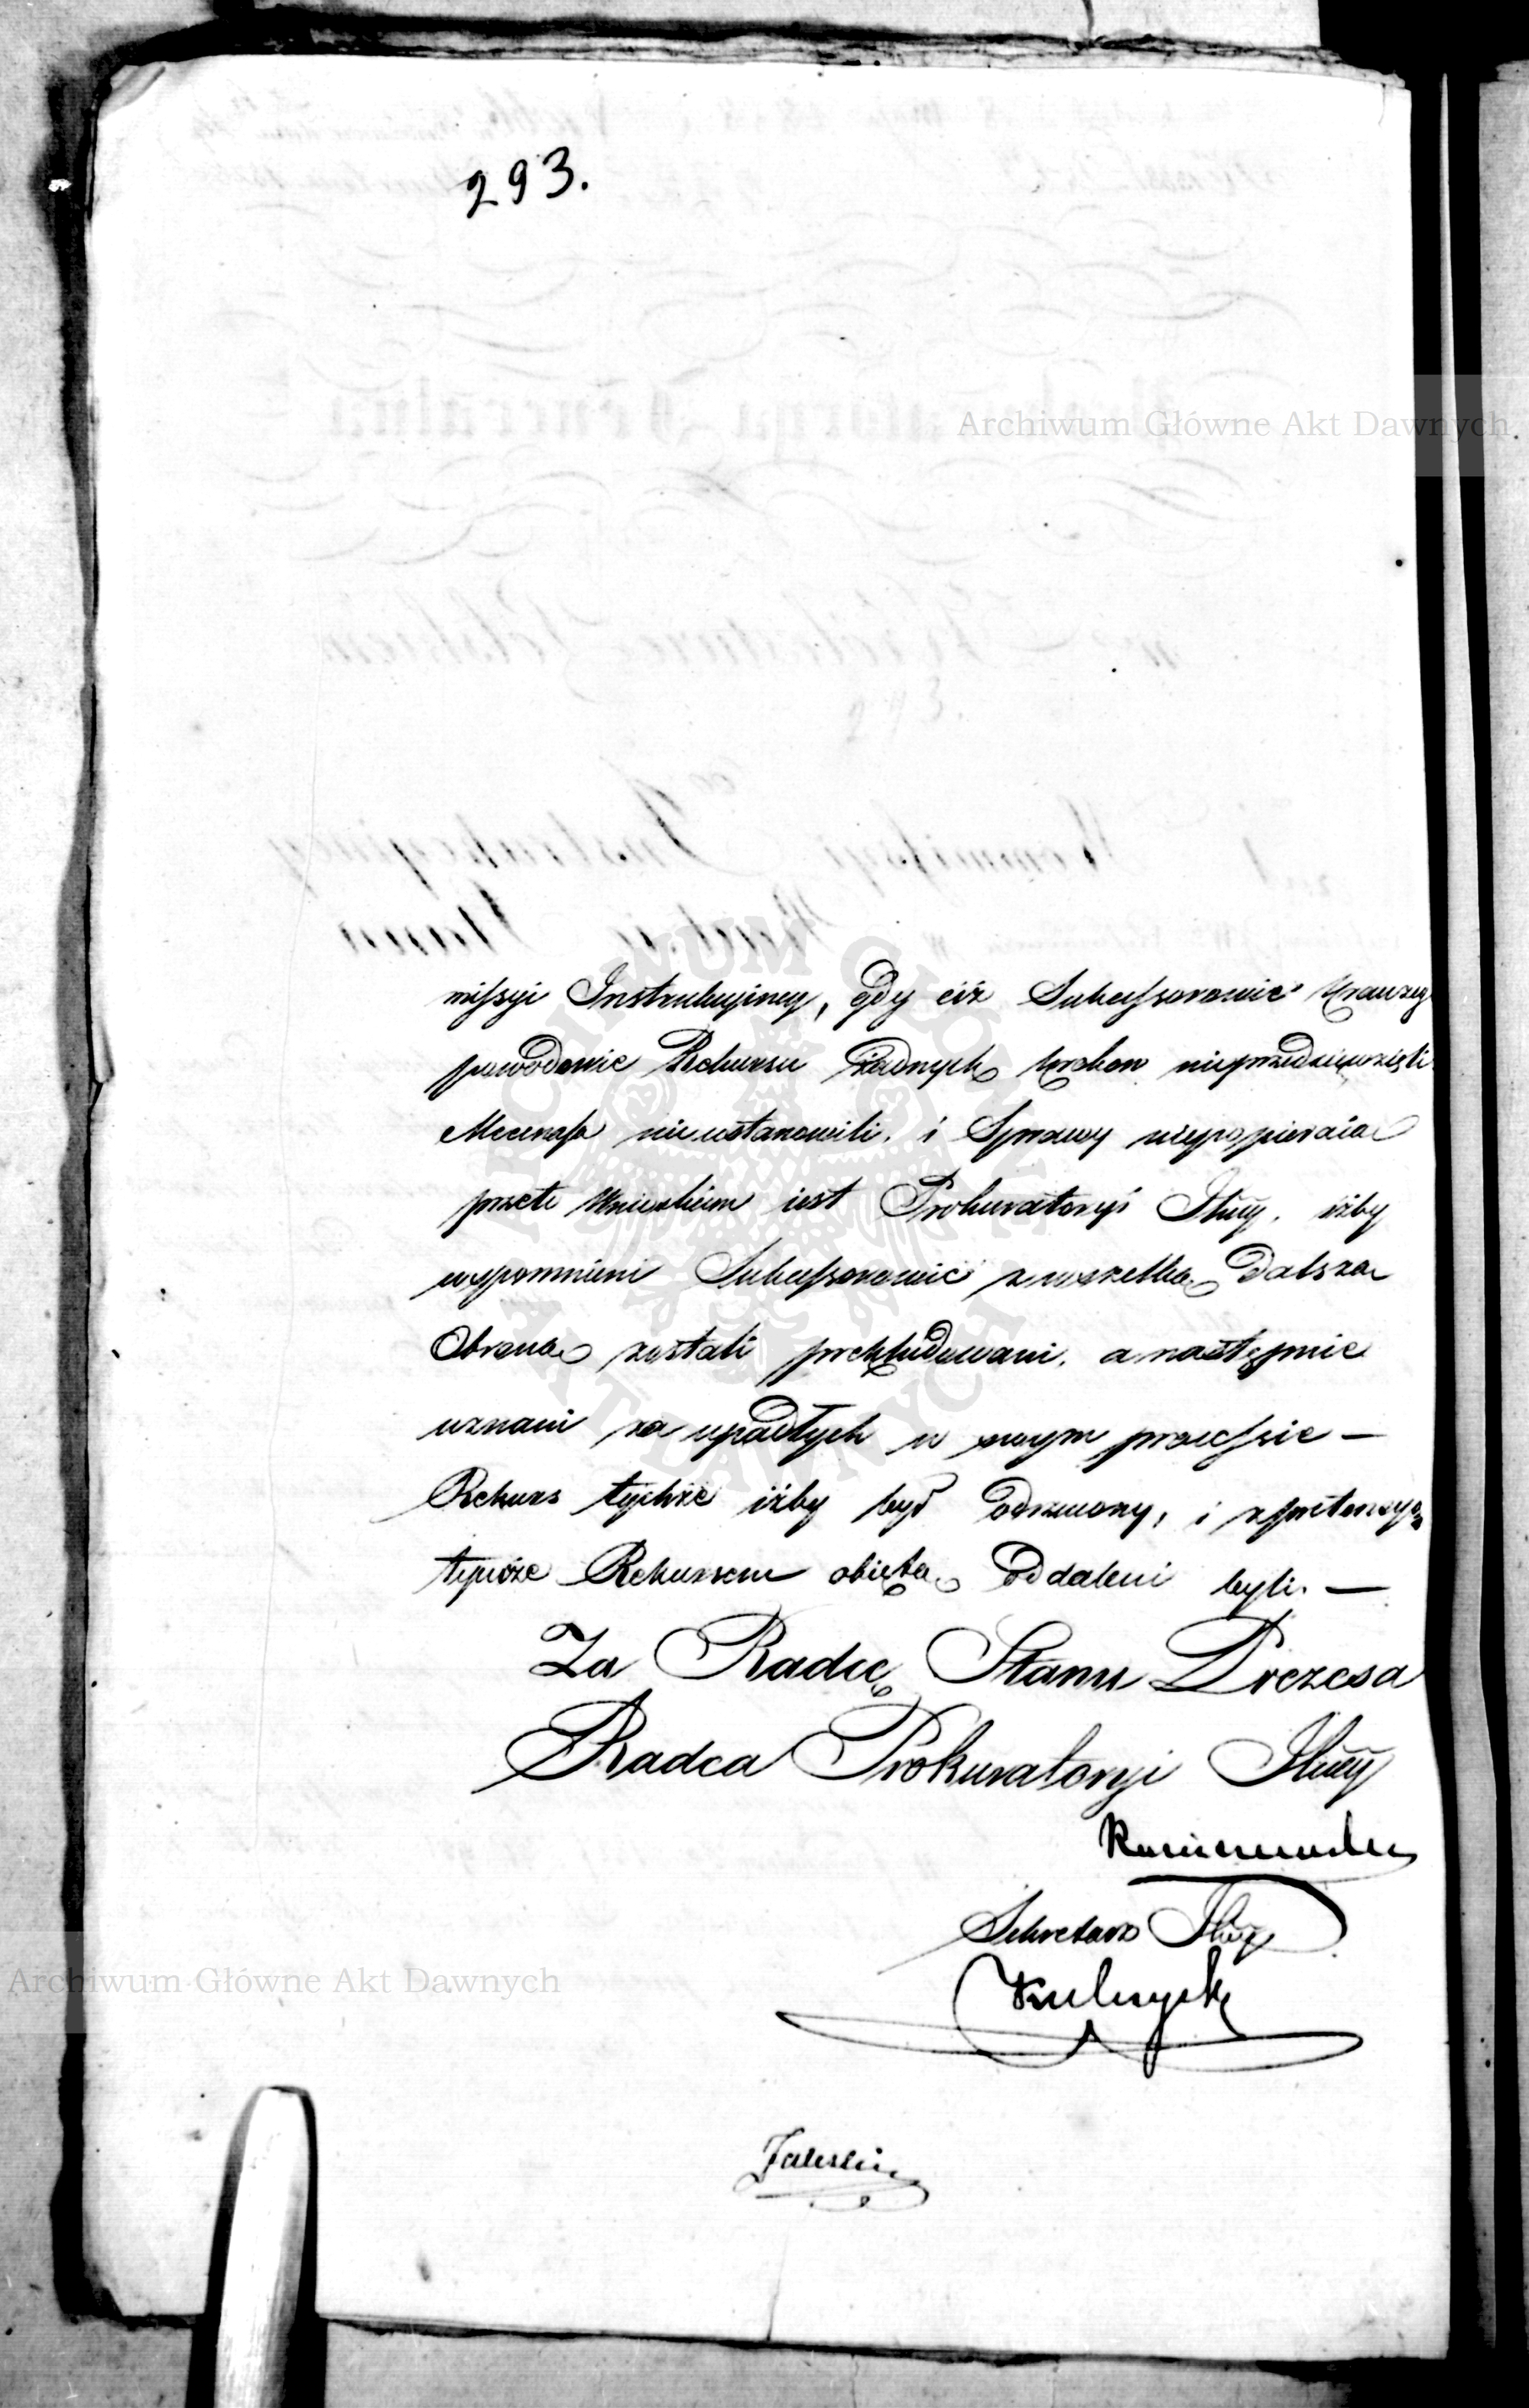 293.
Archiwum Główne Akt Dawnych
missyi Instrukcyiney, gdy ciż Sukcessorowie
powodowie Rekursu żadnych kroków nieprzedsięwzięli
Mecenasa nie ustanowili, i Sprawy niepopieraią
przeto Wnioskiem iest Prokuratoryi Jlney, iżby
wspomnieni Sukcessorowie z wszelką Dalszą
Obroną zostali prekludowani, a następnie
uznani za upadłych w swym processie —
Rekurs tychże iżby był odrzucony, i z pretensyą
tymże Rekursem obiętą Oddaleni byli. —
Za Radcę Stanu Prezesa
Radca Prokuratoryi Jlney
Sekretarz Jlny
Archiwum Główne Akt Dawnych
ARCHIWUM GŁÓWNE AKT DAWNYCH